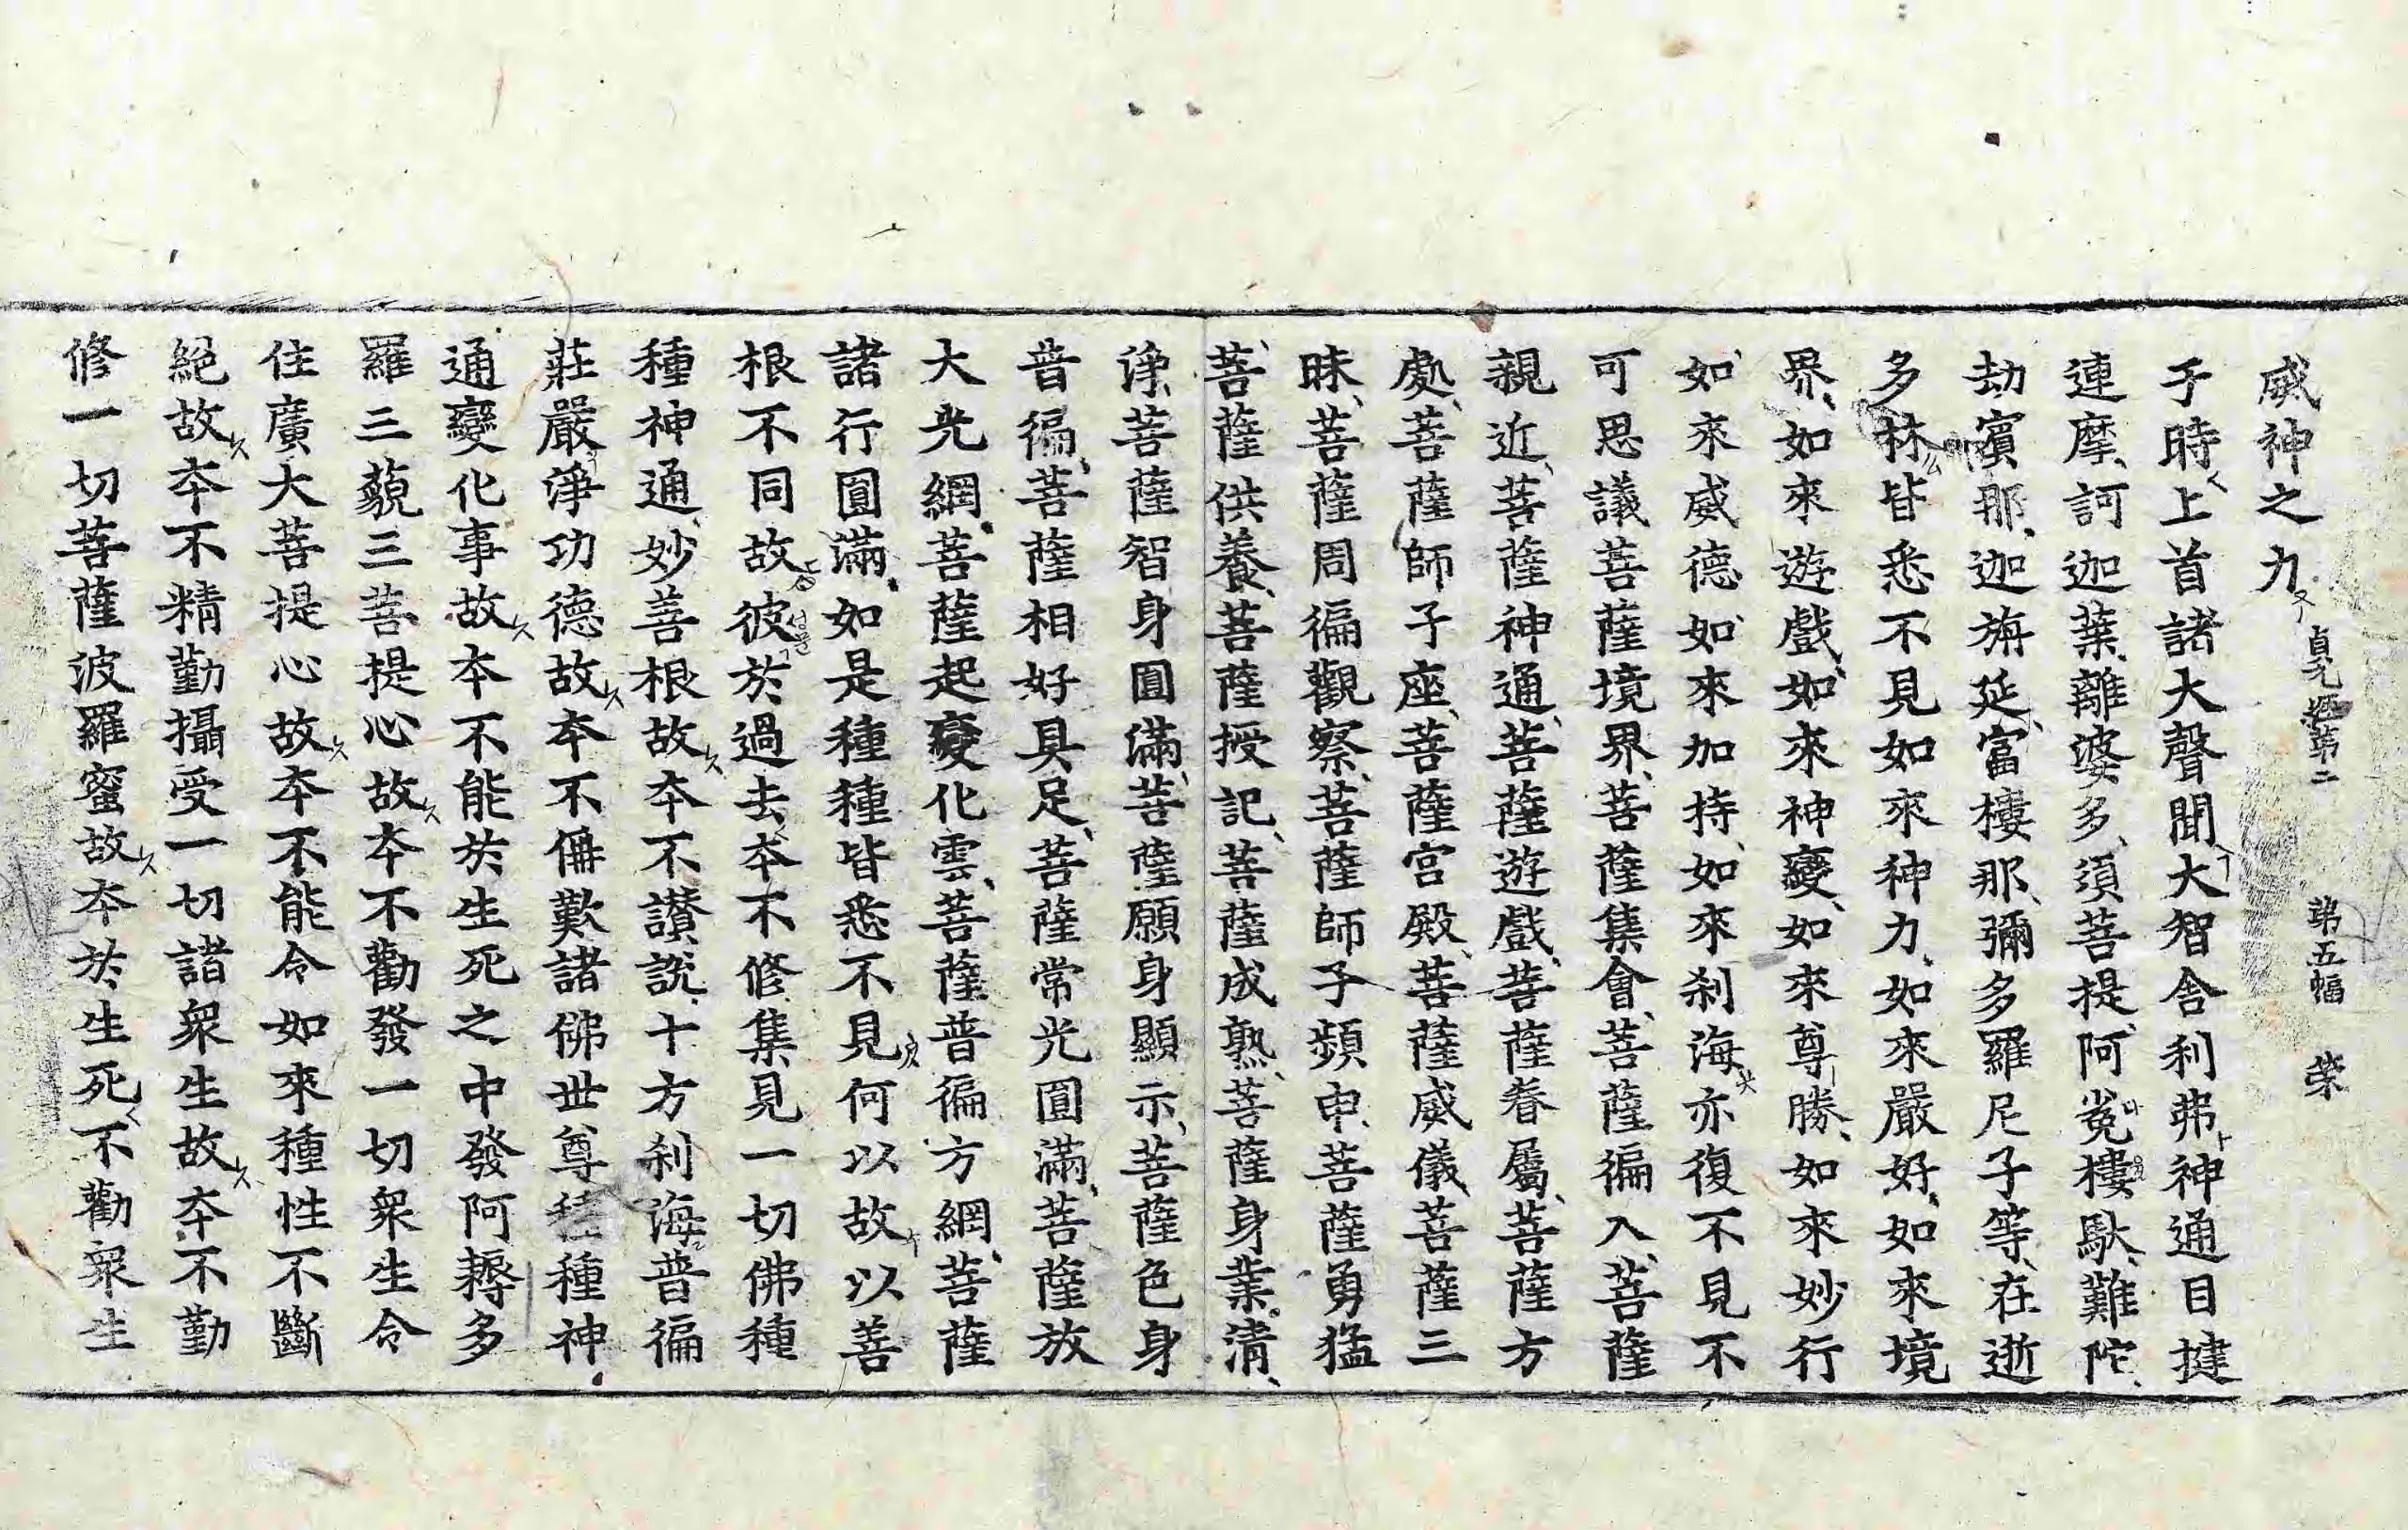 威神之力
貞元經第二 第五幅 荣
子時上首諸大聲聞大智舍利弗神通目揵
連摩訶迦葉離婆多須菩提阿㝹樓馱難陀
劫賓那迦旃延富樓那彌多羅尼子等在逝
多林皆悉不見如來神力如來嚴好如來境
界如來遊戲如來神變如來尊勝如來妙行
如來威德如來加持如來刹海亦復不見不
可思議菩薩境界菩薩集會菩薩徧入菩薩
親近菩薩神通菩薩遊戲菩薩眷屬菩薩方
處菩薩師子座菩薩宮殿菩薩威儀菩薩三
昧菩薩周徧觀察菩薩師子頻申菩薩勇猛
菩薩供養菩薩授記菩薩成熟菩薩身業清
淨菩薩智身圓滿菩薩願身顯示菩薩色身
普徧菩薩相好具足菩薩常光圓滿菩薩放
大光網菩薩起變化雲菩薩普徧方網菩薩
諸行圓滿如是種種皆悉不見何以故以善
根不同故彼於過去夲不修集見一切佛種
種神通妙善根故夲不讃說十方刹海普徧
莊嚴淨功德故夲不偁歎諸佛世尊種種神
通變化事故本不能於生死之中發阿耨多
羅三藐三菩提心故夲不勸發一切衆生令
住廣大菩提心故夲不能令如來種性不斷
絕故夲不精勤攝受一切諸衆生故夲不勤
修一切菩薩波羅蜜故夲於生死不勸衆生